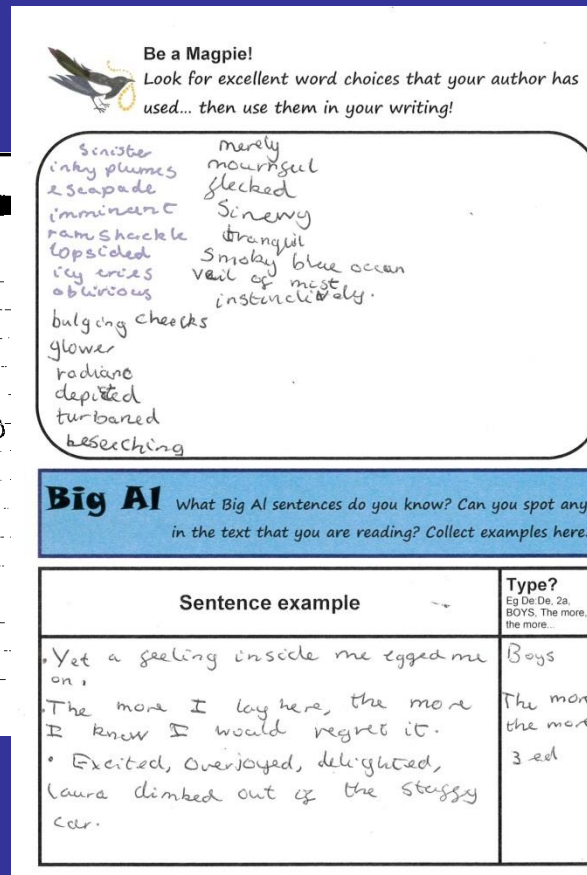 Be a Magpie!
Look for excellent word choices that your author has
used... then use them in your writing!
Sinister
inky plumes
escapade
imminant
ramshackle
lopsided
icy cries
oblivious
bulging cheecks
glower
radiant
depicted
turbaned
beseeching
merely
mournful
flecked
Sinewy
tranquil
Smoky blue ocean
vail of mist
instinctively.
Big Al What Big Al sentences do you know? Can you spot any
in the text that you are reading? Collect examples here.
Sentence example
Type?
Eg De:De, 2a,
BOYS, The more,
the more...
• Yet a feeling inside me egged me
on.
Boys
• The more I lay here, the more
I knew I would regret it.
The more
the more
• Excited, Overjoyed, delighted,
Laura climbed out of the stuffy
car.
3 ed